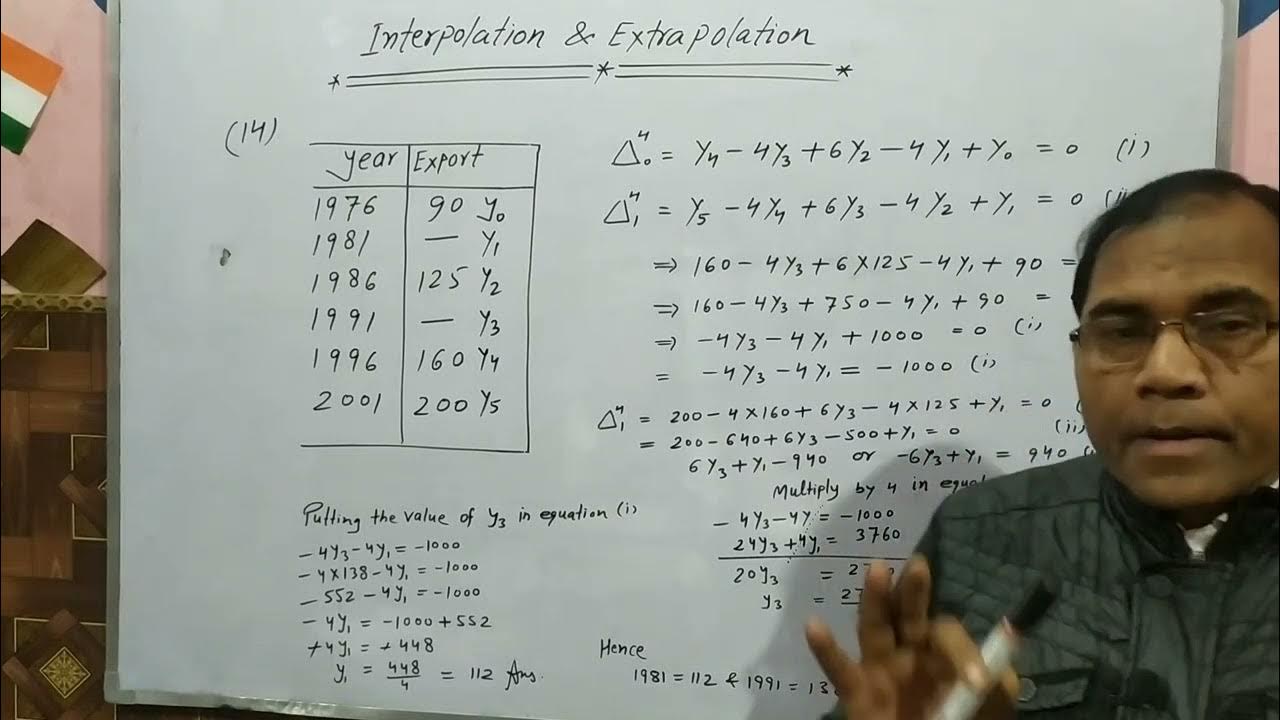 Interpolation & Extrapolation
(14)
year Export
1976 90 y₀
1981 — y₁
1986 125 y₂
1991 — y₃
1996 160 y₄
2001 200 y₅
Δ⁴₀ = y₄ - 4y₃ + 6y₂ - 4y₁ + y₀ = 0 (i)
Δ⁴₁ = y₅ - 4y₄ + 6y₃ - 4y₂ + y₁ = 0
⇒ 160 - 4y₃ + 6×125 - 4y₁ + 90 =
⇒ 160 - 4y₃ + 750 - 4y₁ + 90 =
⇒ -4y₃ - 4y₁ + 1000 = 0 (i)
= -4y₃ - 4y₁ = -1000 (i)
Δ⁴₁ = 200 - 4×160 + 6y₃ - 4×125 + y₁ = 0
= 200 - 640 + 6y₃ - 500 + y₁ = 0 (ii)
6y₃ + y₁ - 940 or -6y₃ + y₁ = 940
Multiply by 4 in
- 4y₃ - 4y = -1000
24y₃ + 4y₁ = 3760
20y₃ =
y₃ =
Putting the value of y₃ in equation (i)
- 4y₃ - 4y₁ = -1000
- 4×138 - 4y₁ = -1000
- 552 - 4y₁ = -1000
- 4y₁ = -1000 + 552
+4y₁ = +448
y₁ = 448/4 = 112 Ans.
Hence
1981 = 112 & 1991 =